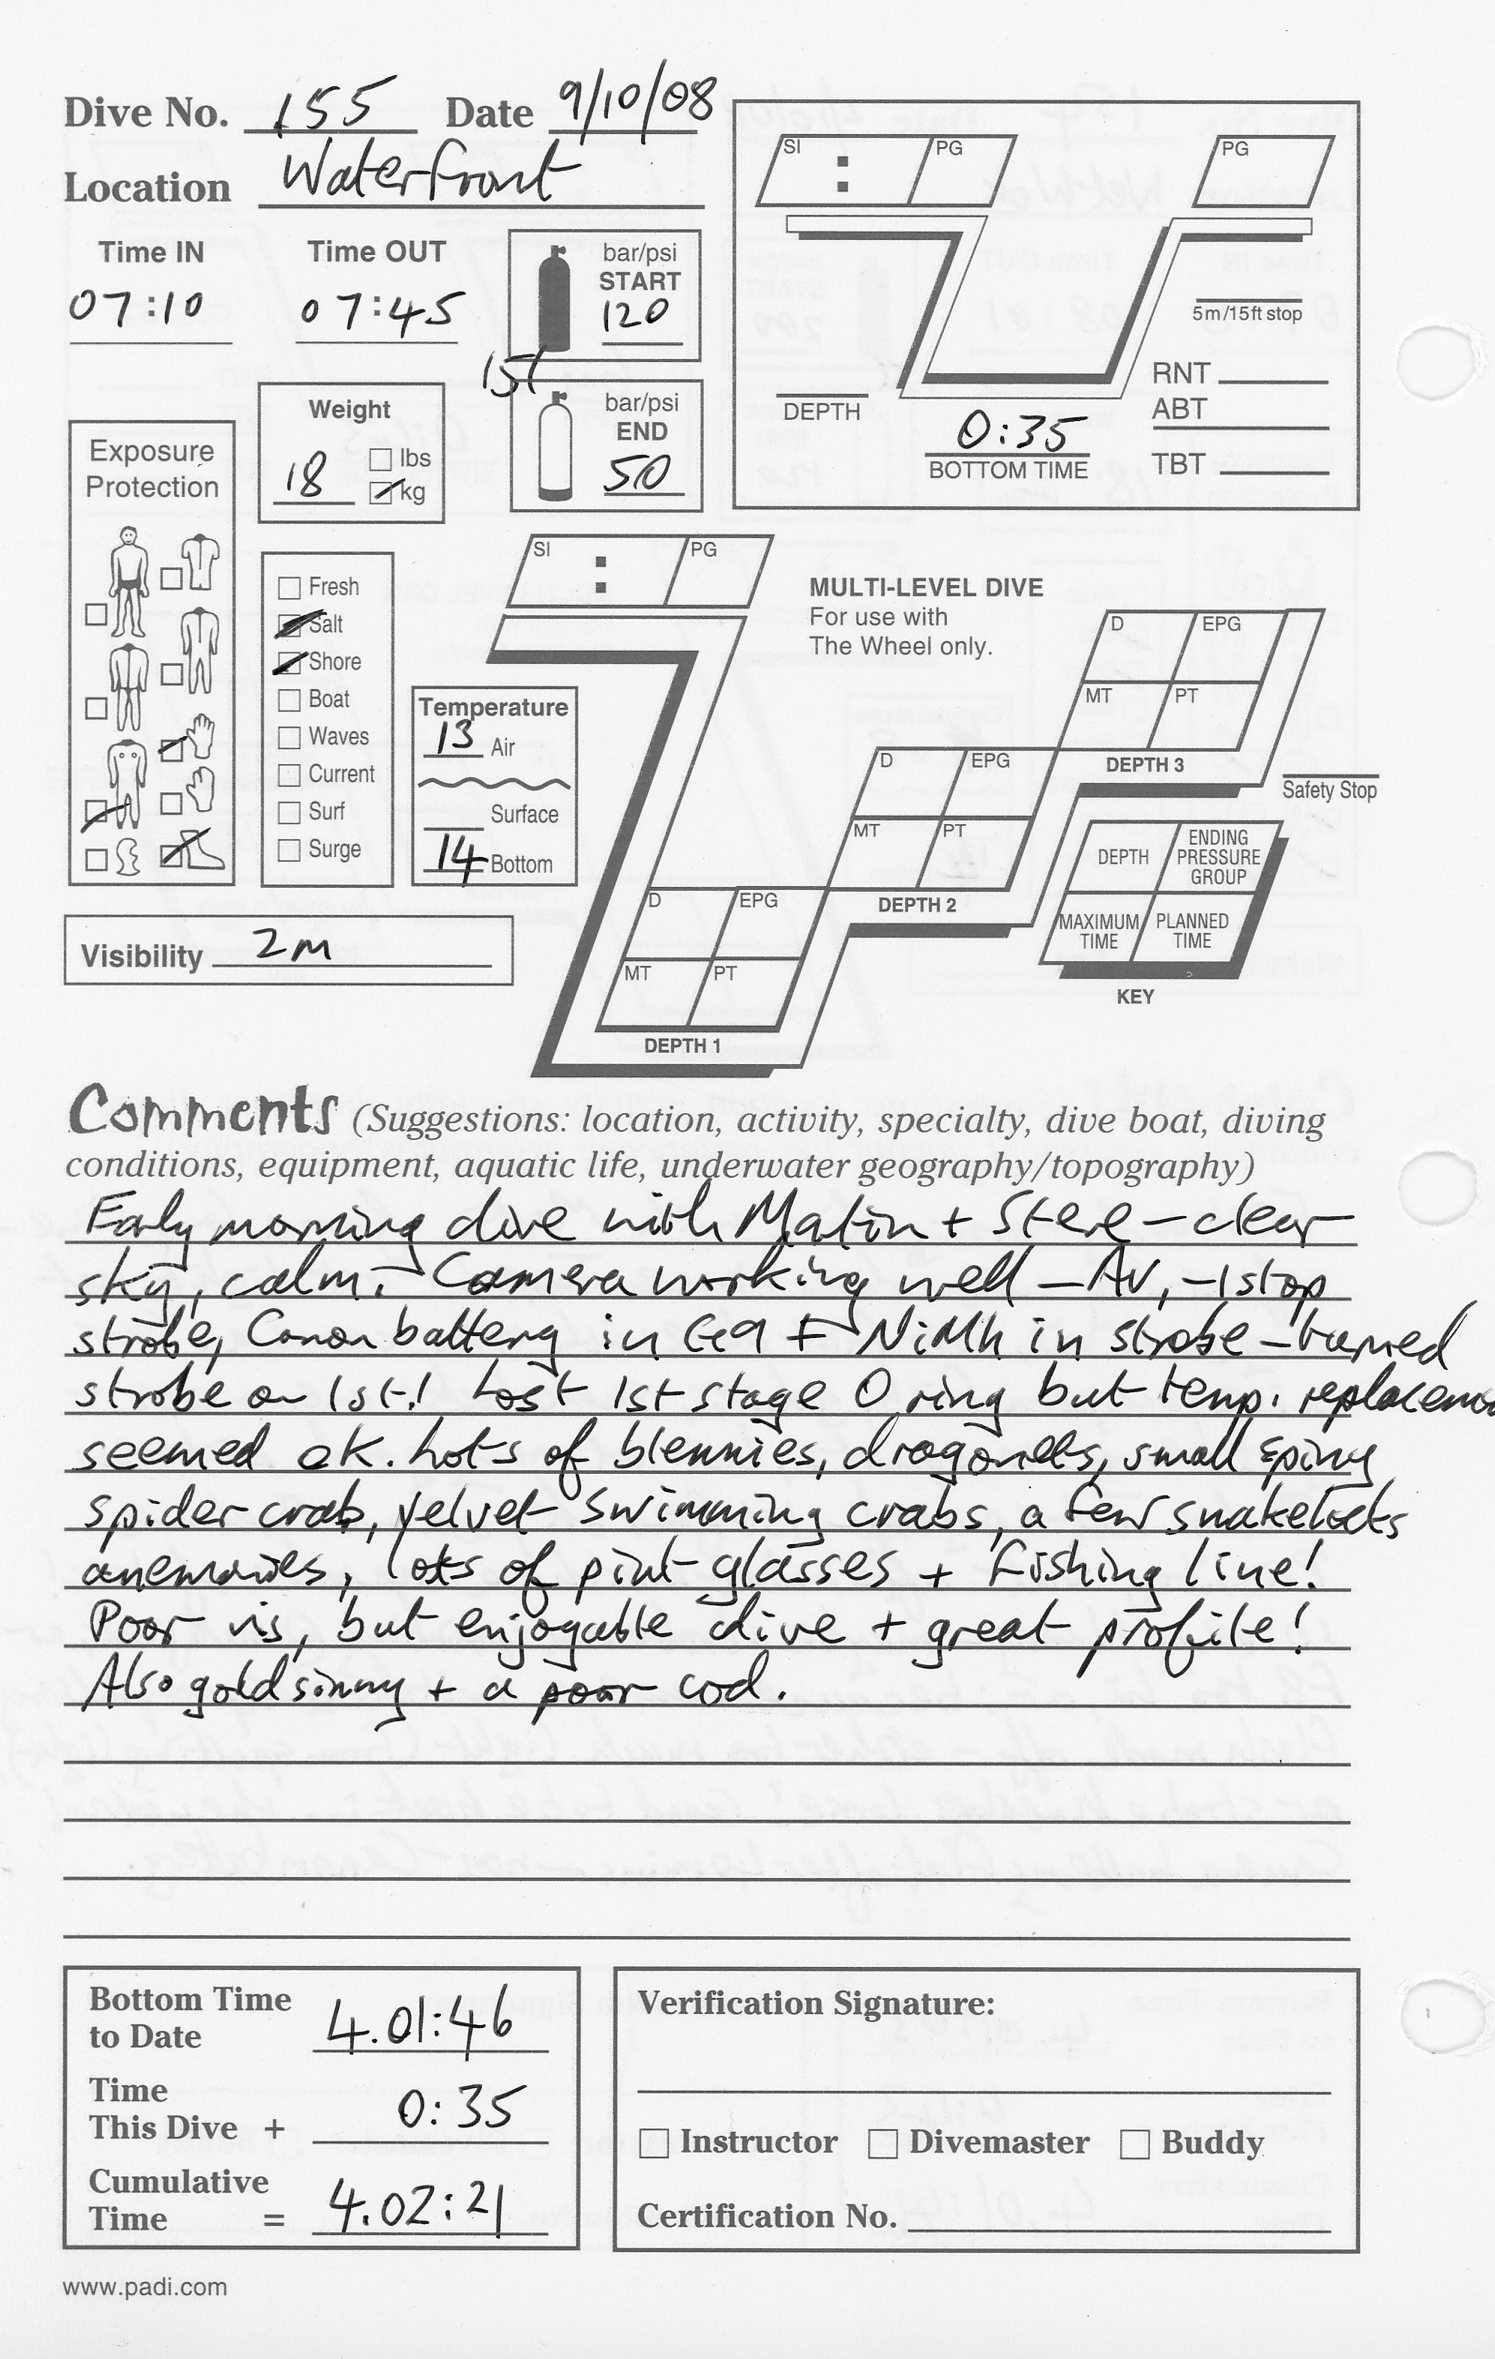 Dive No. 155 Date 9/10/08
Location Waterfront
Time IN Time OUT
07:10 07:45
bar/psi
START
120
15l
bar/psi
END
50
Weight
18 lbs
kg
Exposure
Protection
Fresh
Salt
Shore
Boat
Waves
Current
Surf
Surge
Temperature
13 Air
Surface
14 Bottom
Visibility 2m
SI : PG
PG
5m/15ft stop
DEPTH
0:35
BOTTOM TIME
RNT
ABT
TBT
SI : PG
MULTI-LEVEL DIVE
For use with
The Wheel only.
D EPG
MT PT
DEPTH 3
Safety Stop
D EPG
MT PT
DEPTH 2
D EPG
MT PT
DEPTH 1
DEPTH
ENDING
PRESSURE
GROUP
MAXIMUM
TIME
PLANNED
TIME
KEY
Comments (Suggestions: location, activity, specialty, dive boat, diving
conditions, equipment, aquatic life, underwater geography/topography)
Early morning dive with Matin + Steve - clear
sky, calm. Camera working well - AV, -1 stop
strobe, Canon battery in G9 + NiMh in strobe - turned
strobe on 1st! Lost 1st stage O ring but temp. replacement
seemed ok. Lots of blennies, dragonets, small spiny
spider crab, velvet swimming crabs, a few snakelocks
anemones, lots of pint glasses + fishing line!
Poor vis, but enjoyable dive + great profile!
Also goldsinny + a poor cod.
Bottom Time
to Date 4.01:46
Time
This Dive + 0:35
Cumulative
Time = 4.02:21
Verification Signature:
Instructor Divemaster Buddy
Certification No.
www.padi.com